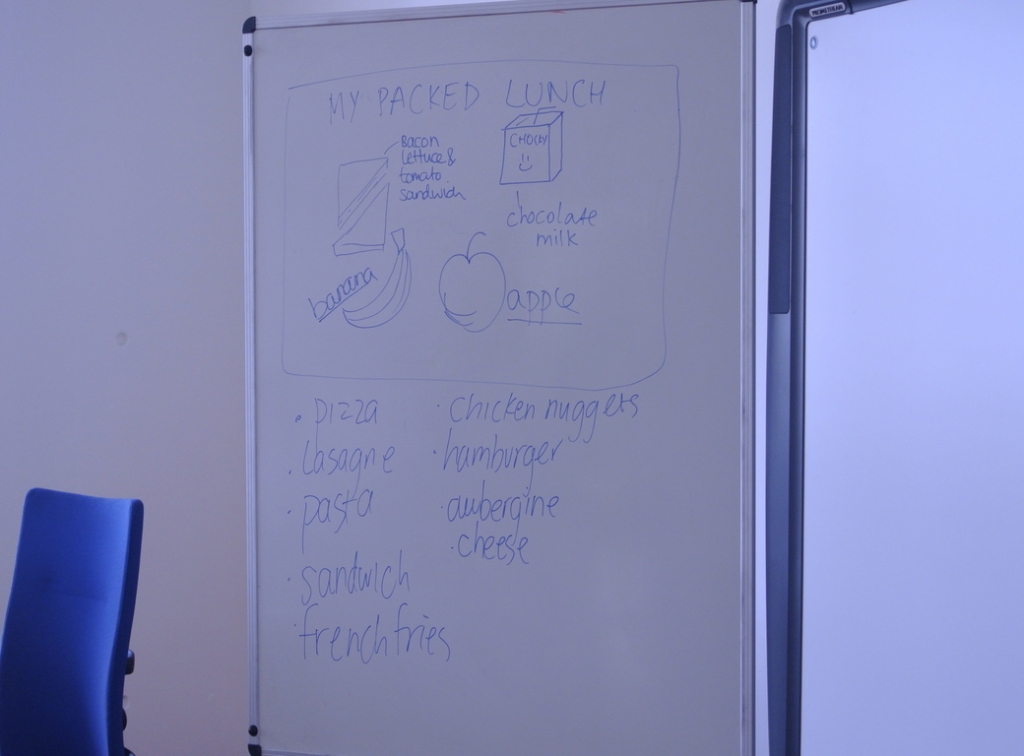 MY PACKED LUNCH
Bacon
lettuce &
tomato
sandwich
CHOCKY
chocolate
milk
banana
apple
· pizza
· Lasagne
· pasta
· sandwich
· french fries
· chicken nuggets
· hamburger
· aubergine
· cheese
PROMETHEAN